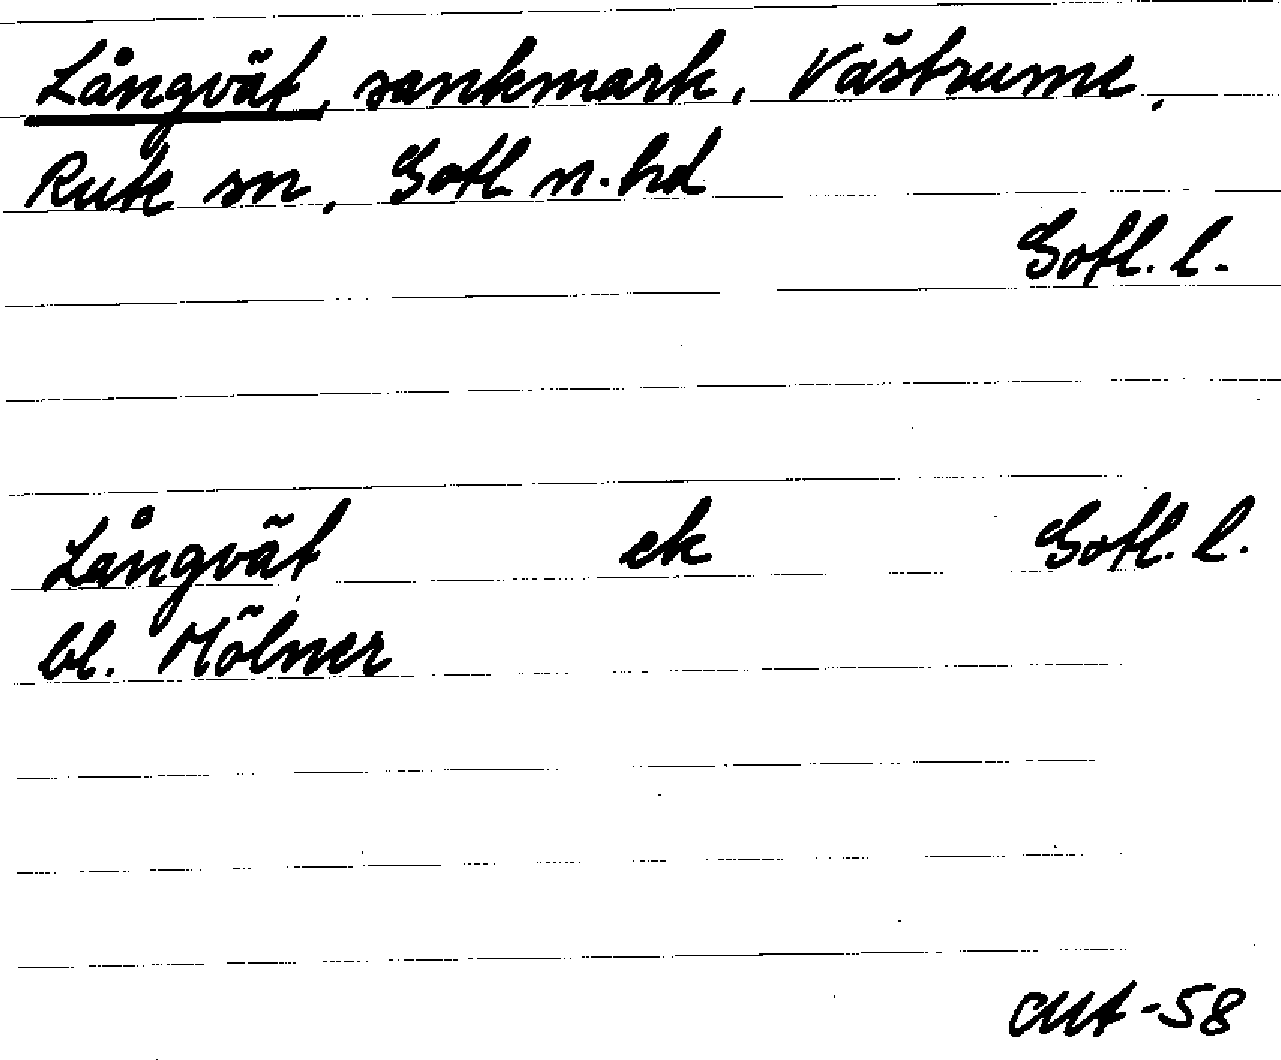 Långvät, sankmark, Västrume,
Rute sn, Gotl n. hd
Gotl. l.
Långvät ek Gotl. l.
bl. Mölner
-58